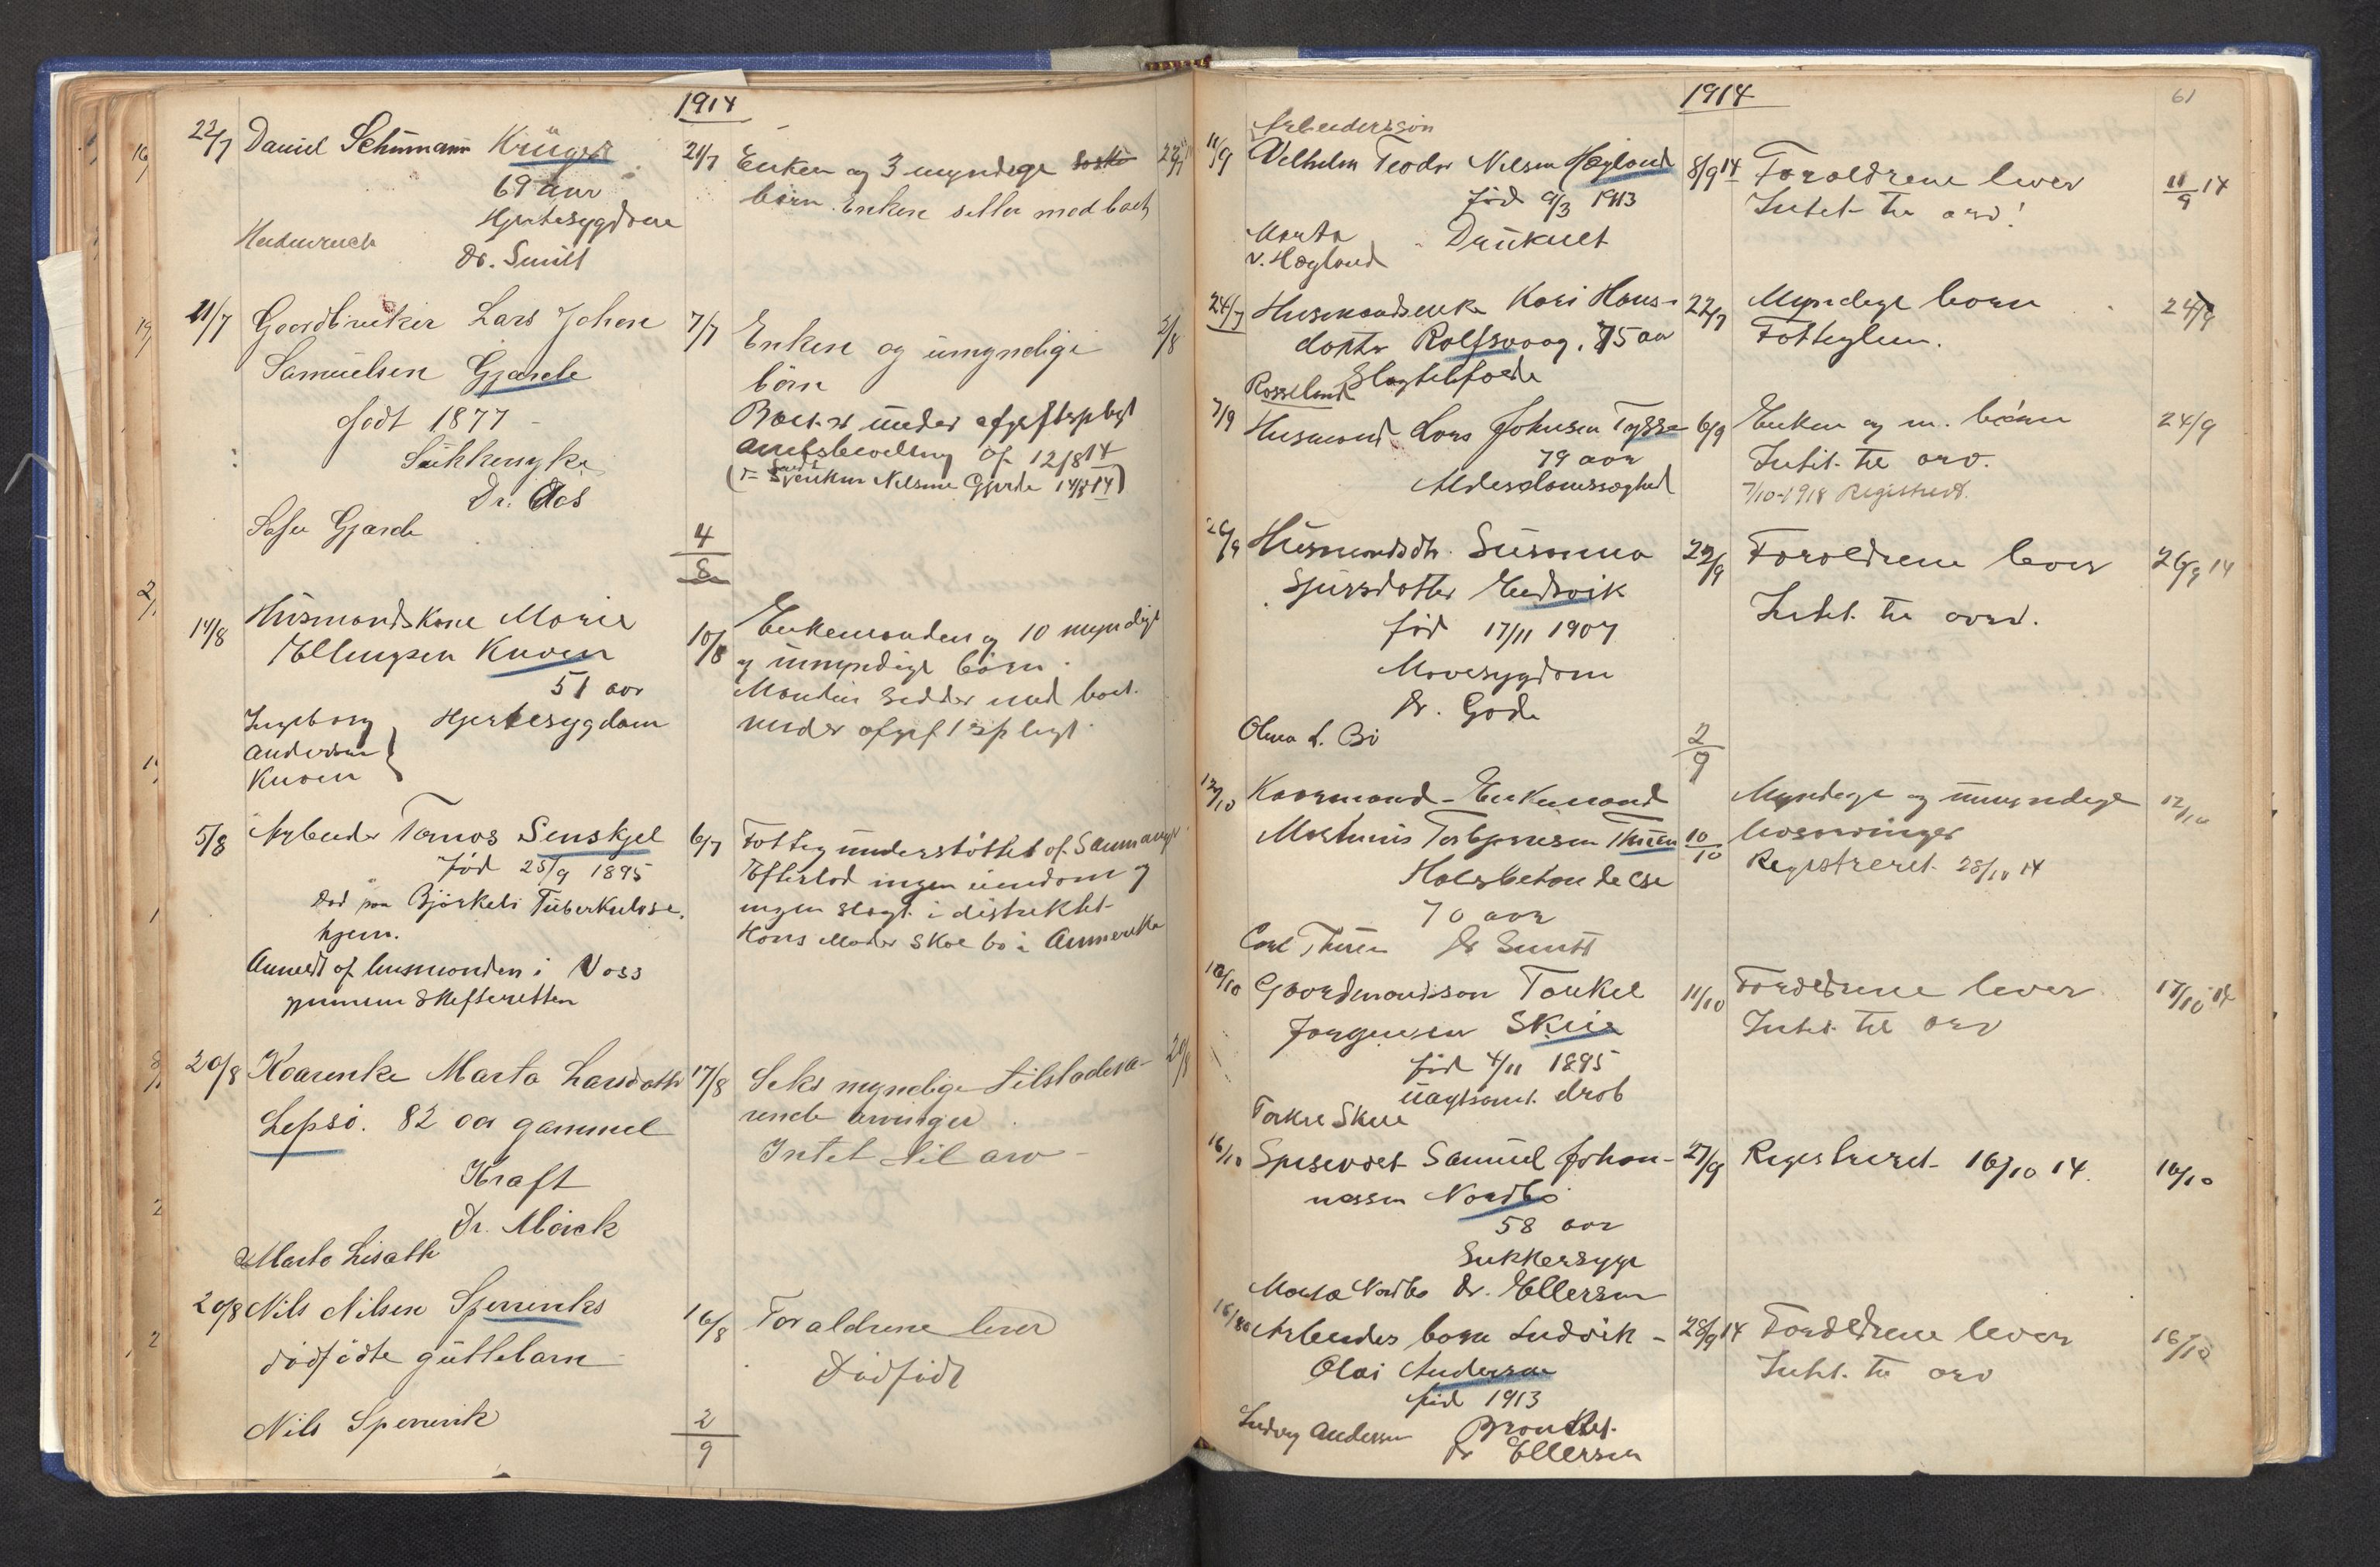 1914
22/7 Daniel Schumann Krüger 21/7 Enken og 3 myndige
69 aar børn. Enken sitter med boet
Hjertesygdom
Dr. Smitt
11/7 Gaardbruker Lars Johan 7/7 Enken og umyndige
Samuelsen Gjærde børn
født 1877 Boet er under afgiftspligt
Sukkersyke amtsbevilling af 12/8 14
Nelsine Gjerde 14/8 14)
Dr. Aas
Gjærde
4
8
14/8 Husmandskone Marie 10/8 Enkemanden og 10 myndige
Ellingsen Knoven og umyndige børn.
51 aar Manden sidder med boet
Ingeborg Hjertesygdom under afgiftspligt.
Andersen
Knoven
5/8 Arbeider Tomas Senskjel 6/7 Fattig understøttet af Samnanger
Fød 25/9 1895 Efterlod ingen eiendom og
Død paa Bjørkeli Tuberkulose ingen slegt i distriktet
hjem. Hans Moder skal bo i Amerika
Anmeldt af lensmanden i Voss
gjennem Skifteretten
20/8 Kaarenke Marta Larsdatter 17/8 Seks myndige tilstedevæ- 20/8
Lepsø. 82 aar gammel rende arvinger
Kræft Intet til arv
Dr. Mørck
Marta
20/8 Nils Nilsen 16/8 Foraldrene lever
dødfødte guttebarn Dødfødt
Nils
2
9
1914
61
Arbeidersøn
11/9 Vilhelm Teodor Nilsen Høgland 8/9 14 Foraldrene lever 11/9 14
fød 9/3 1913 Intet til arv!
Marta Druknet
N. Høgland
24/9 Husmandsenke Kari Hans- 22/9 Myndige børn 24/9
datter Rolfsvaag, 75 aar Fattiglem.
Rosseland Slagtilfælde
7/9 Husmand Lars Johnsen Tysse 6/9 Enken og m. børn 24/9
79 aar Intet til arv.
Alderdomssvaghed 7/10-1918 Registreret.
26/9 Husmandsdtr. Susanna 22/9 Foraldrene lever 26/9 14
Sjursdotter Eidsvik Intet til arv.
fød 17/11 1907
Mavesygdom
Dr. Gade
Olena L. Bø
2
9
12/10 Kaarmand - Enkemand Myndige og umyndige 12/10
Martinus Torbjørnsen Thuen 10/10 livsarvinger
Halsbetændelse Registreret 28/10 14
70 aar
Carl Thuen Dr Smitt
Gaardmandssøn Torkel 11/10 Foraldrene lever 17/10 14
Jørgensen Skeie Intet til arv
fød 4/11 1895
uagtsomt drab
Skeie
16/10 Spisevært Samuel Johan- 27/9 Registreret 16/10 14. 16/10
nessen Nordbø
58 aar
Sukkersyge
Nordbø Dr. Ellersen
16/10 Arbeiders barn Ludvik 28/9 14 Foraldrene lever 16/10
Olai Andersen Intet til arv
fød 1913
Ludvig Andersen Bronkit.
Dr Ellersen